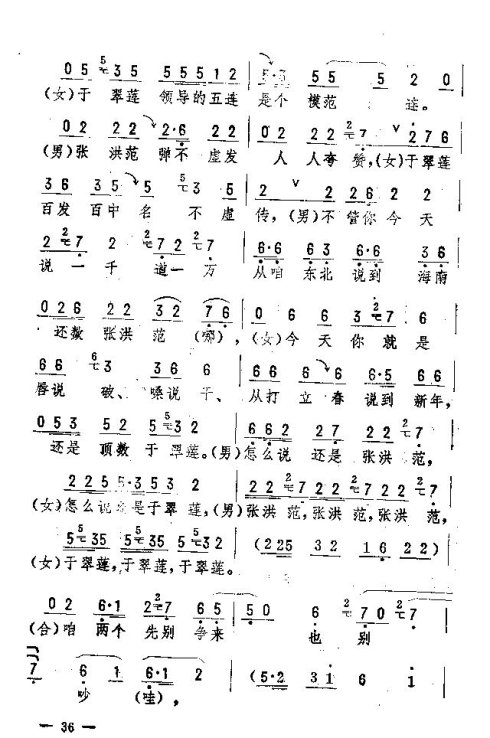 0 5 5 3 5 5 5 5 1 2 | 5·3 5 5 5 2 0 |
(女)于 翠莲 领导的五连 是个 模范 连。
0 2 2 2 2·6 2 2 | 0 2 2 2 2 7 2 7 6 |
(男)张 洪范 弹不 虚发 人 人夸 赞,(女)于翠莲
3 6 3 5 5 5 3 5 | 2 2 2 6 2 2 |
百发 百中 名 不 虚 传,(男)不 管你 今天
2 2 7 2 7 2 2 7 | 6·6 6 3 6·6 3 6 |
说 一 千 道一 万 从咱 东北 说到 海南
0 2 6 2 2 3 2 7 6 | 0 6 6 3 2 7 6 |
还数 张洪 范(哪),(女)今天 你 就 是
6 6 6 3 3 6 6 | 6 6 6 6·5 6 6 |
唇说 破、嗓说 干、 从打 立春 说到 新年,
0 5 3 5 2 5 5 3 2 | 6 6 2 2 7 2 2 7 |
还是 顶数 于翠莲。(男)怎么说 还是 张洪 范,
2 2 5 5 5·3 5 2 | 7 2 2 2 7 2 2 2 7 2 2 2 7 |
(女)怎么说 还是于翠 莲,(男)张洪 范,张洪 范,张洪 范,
5 5 3 5 5 5 3 5 5 5 3 2 | (2 2 5 3 2 1 6 2 2) |
(女)于翠莲,于翠莲,于翠莲。
0 2 6·1 2 2 7 6 5 | 5 0 6 2 7 0 2 7 |
(合)咱 两个 先别 争来 也 别
7 6 1 6·1 2 | (5·2 3 1 6 1 |
吵 (哇),
— 36 —